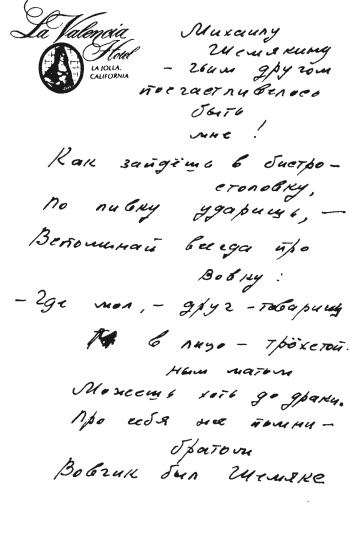 La Valencia
Hotel
LA JOLLA,
CALIFORNIA
Михаилу
Шемякину
- чьим другом
посчастливелось
быть
мне!
Как зайдёшь в бистро-
столовку,
По пивку ударишь, —
Вспоминай всегда про
Вовку:
- Где мол, - друг - товарищ
в лицо - трёхстой-
ным матом
Можешь хоть до драки.
Про себя же помни -
братом
Вовчик был Шемяке